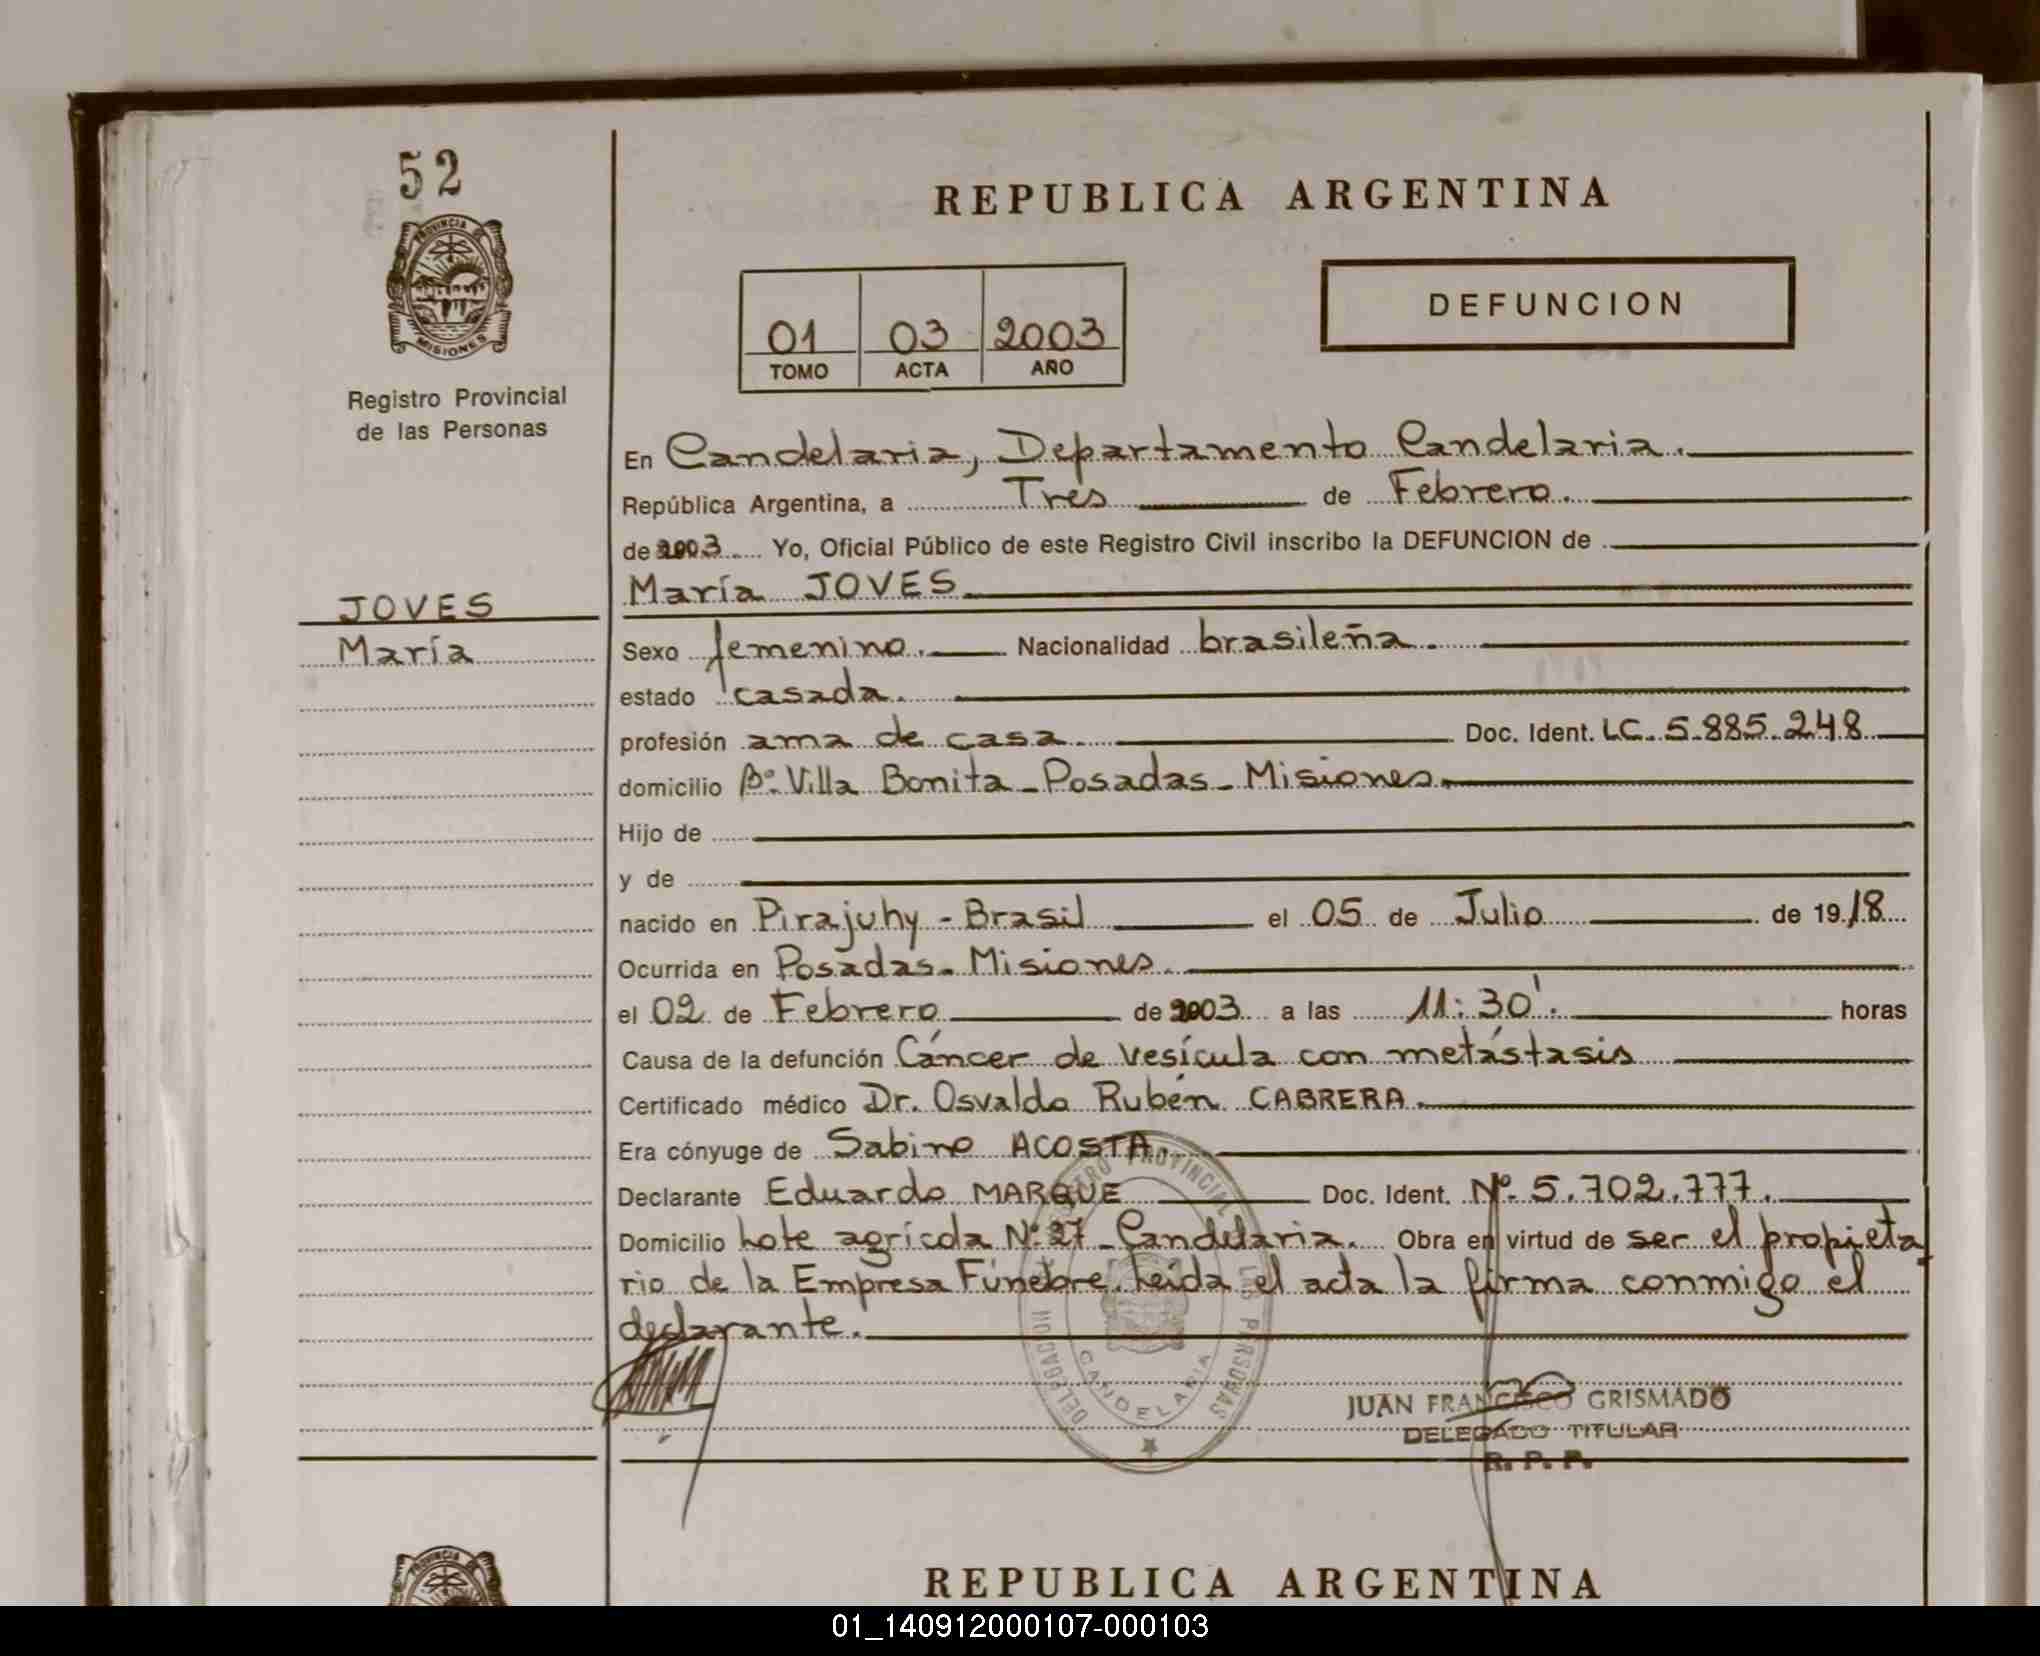 52
PROVINCIA DE
MISIONES
Registro Provincial
de las Personas
REPUBLICA ARGENTINA
01 03 2003
TOMO ACTA AÑO
DEFUNCION
En Candelaria, Departamento Candelaria.
República Argentina, a Tres de Febrero.
de 2003 Yo, Oficial Público de este Registro Civil inscribo la DEFUNCION de
María JOVES
JOVES
María
Sexo femenino. Nacionalidad brasileña.
estado casada.
profesión ama de casa. Doc. Ident. LC. 5.885.248
domicilio Bº. Villa Bonita - Posadas - Misiones.
Hijo de
y de
nacido en Pirajuhy - Brasil el 05 de Julio de 1918
Ocurrida en Posadas. Misiones.
el 02 de Febrero de 2003 a las 11:30'. horas
Causa de la defunción Cáncer de vesícula con metástasis
Certificado médico Dr. Osvaldo Rubén CABRERA.
Era cónyuge de Sabino ACOSTA.
Declarante Eduardo MARQUE Doc. Ident. Nº. 5.702.777.
Domicilio Lote agrícola Nº 27 - Candelaria. Obra en virtud de ser el propieta
rio de la Empresa Fúnebre. Leída el acta la firma conmigo el
declarante.
REGISTRO PROVINCIAL DE LAS PERSONAS
DELEGACION
CANDELARIA
JUAN FRANCISCO GRISMADO
DELEGADO TITULAR
R. P. P.
PROVINCIA
REPUBLICA ARGENTINA
01_140912000107-000103